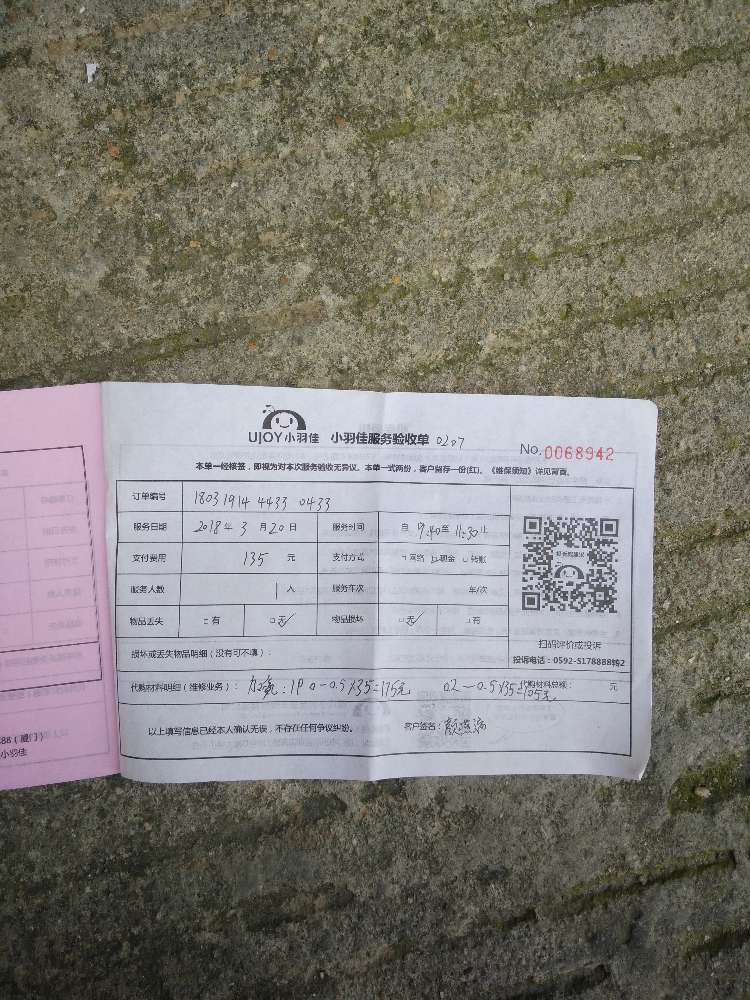 UJOY小羽佳 小羽佳服务验收单 0207
No. 0068942
本单一经核签，即视为对本次服务验收无异议。本单一式两份，客户留存一份(红)。《维保须知》详见背面。
订单编号 18031914 4433 0433
服务日期 2018年 3月20日 服务时间 自 9:40至 11:30止
支付费用 135 元 支付方式 □网络 □现金 □转账
服务人数 1 人 服务车次 车/次
物品丢失 □有 □无 物品损坏 □无 □有
扫码评价或投诉
损坏或丢失物品明细（没有可不填）：
投诉电话：0592-5178888转2
代购材料明细（维修业务）：加氟：1P 0-0.5X35=175元 0.2-0.5X35=105元 代购材料总额： 元
以上填写信息已经本人确认无误，不存在任何争议纠纷。 客户签名：
88（厦门）
小羽佳